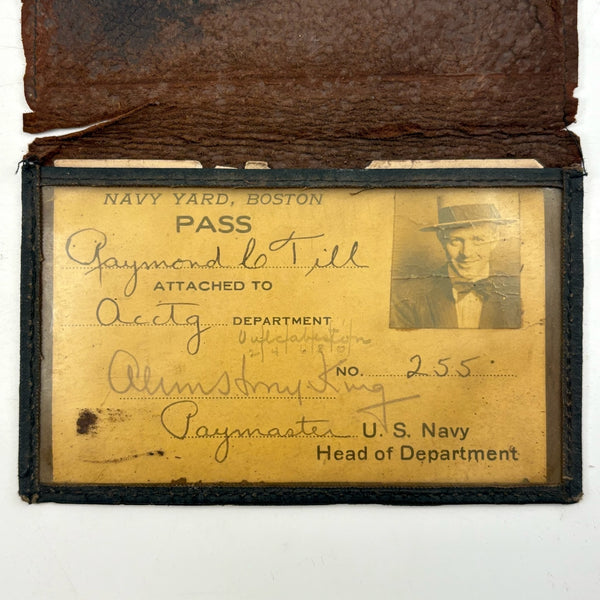 NAVY YARD, BOSTON
PASS
Raymond C Till
ATTACHED TO
Acctg DEPARTMENT
NO. 255
King
Paymaster U. S. Navy
Head of Department